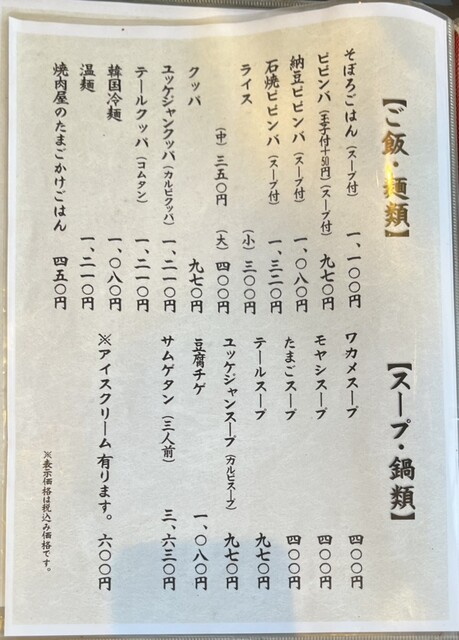 【ご飯・麺類】
そぼろごはん（スープ付） 一、一〇〇円
ビビンバ（玉子付＋50円）（スープ付） 九七〇円
納豆ビビンバ（スープ付） 一、〇八〇円
石焼ビビンバ（スープ付） 一、三二〇円
ライス （小）三〇〇円
（中）三五〇円 （大）四〇〇円
クッパ 九七〇円
ユッケジャンクッパ（カルビクッパ） 一、二一〇円
テールクッパ（コムタン） 一、二一〇円
韓国冷麺 一、〇八〇円
温麺 一、二一〇円
焼肉屋のたまごかけごはん 四五〇円
【スープ・鍋類】
ワカメスープ 四〇〇円
モヤシスープ 四〇〇円
たまごスープ 四〇〇円
テールスープ 九七〇円
ユッケジャンスープ（カルビスープ） 九七〇円
豆腐チゲ 一、〇八〇円
サムゲタン（三人前） 三、六三〇円
※アイスクリーム有ります。 六〇〇円
※表示価格は税込み価格です。